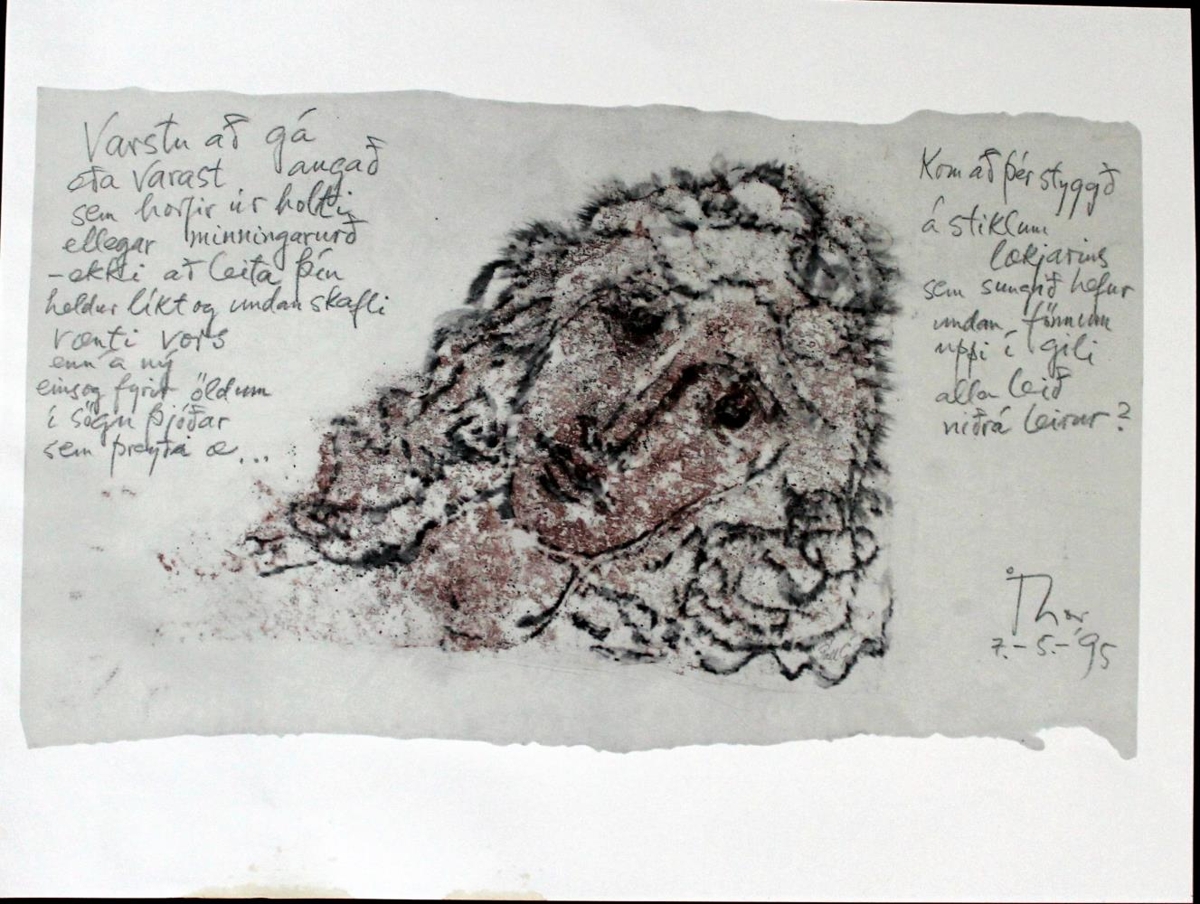 Varstu að gá
eða varast augað
sem horfir úr holti
ellegar minningarurð
-ekki að leita þín
heldur líkt og undan skafli
vænti vors
enn á ný
einsog fyrir öldum
í sögu þjóðar
sem þreytti æ...
Kom að þér styggð
á stiklum
lækjarins
sem sungið hefur
undan fönnum
uppi í gili
alla leið
niðrá leirur?
Thor
7.-5.-'95